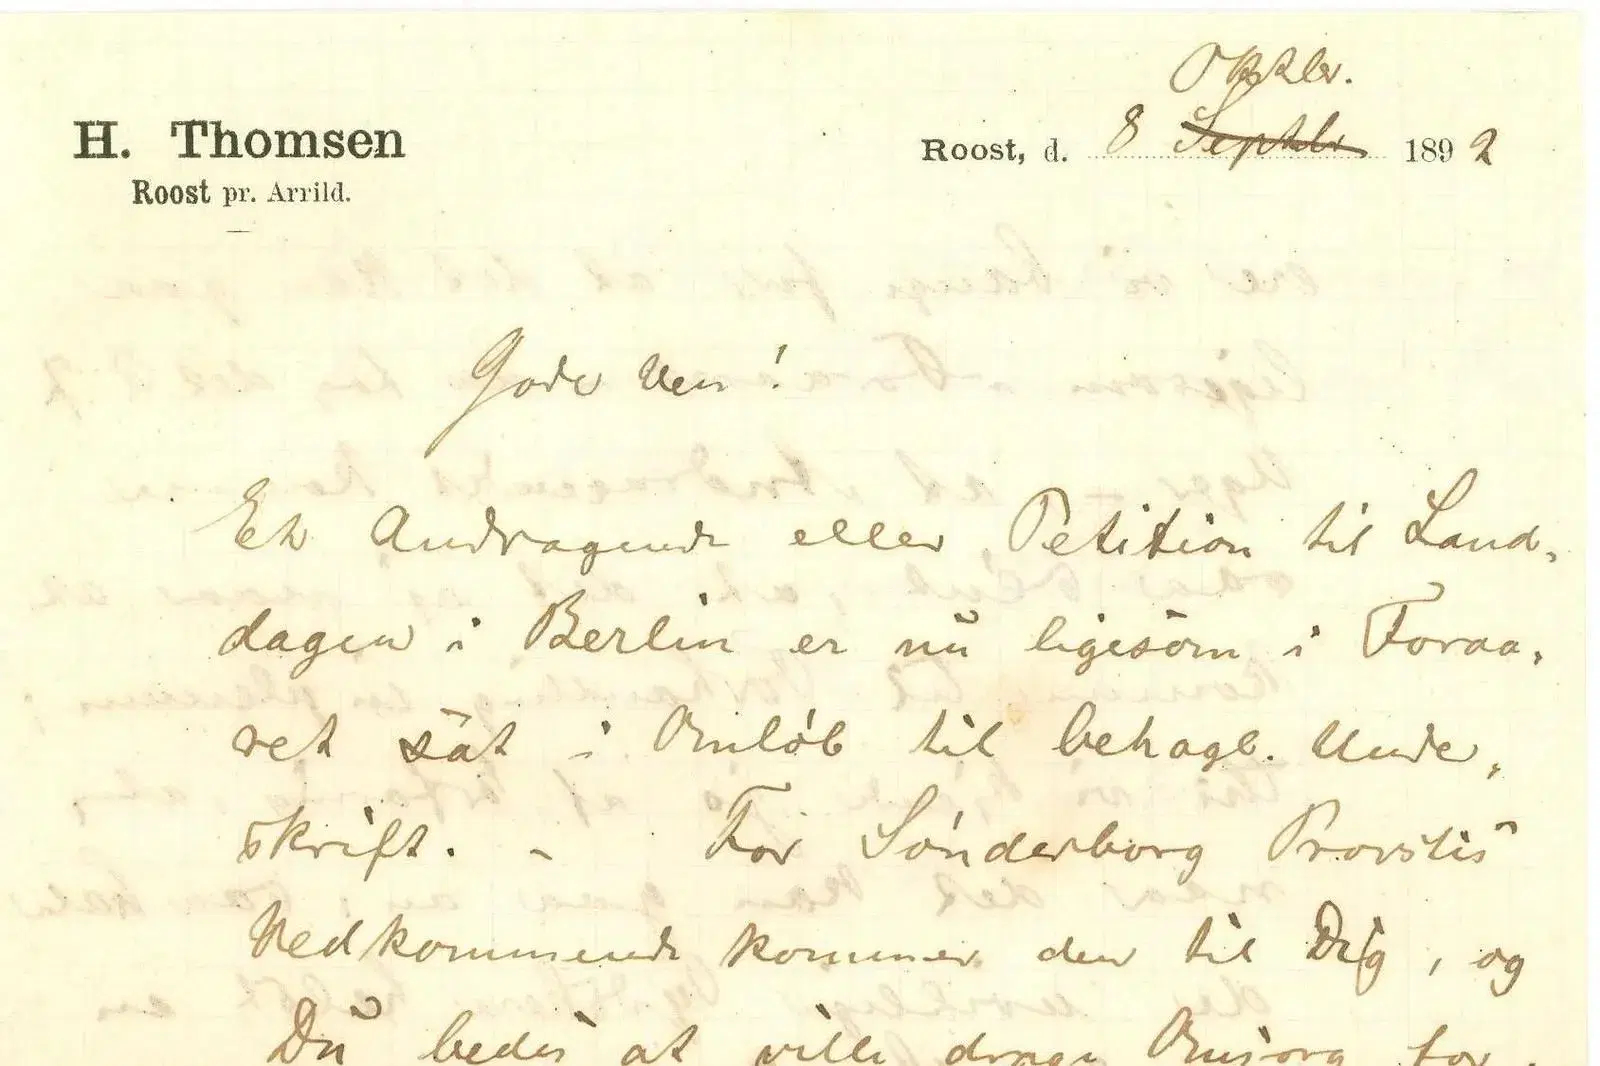 Oktbr.
H. Thomsen
Roost pr. Arrild.
Roost, d. 8 Septbr 1892
Gode Ven!
Et Andragende eller Petition til Land-
dagen i Berlin er nu ligesom i Foraa-
ret sat i Omløb til behagl. Unde-
skrift. - For Sønderborg Provstis
Vedkommende kommer den til Dig, og
Du bedes at ville drage Omsorg for